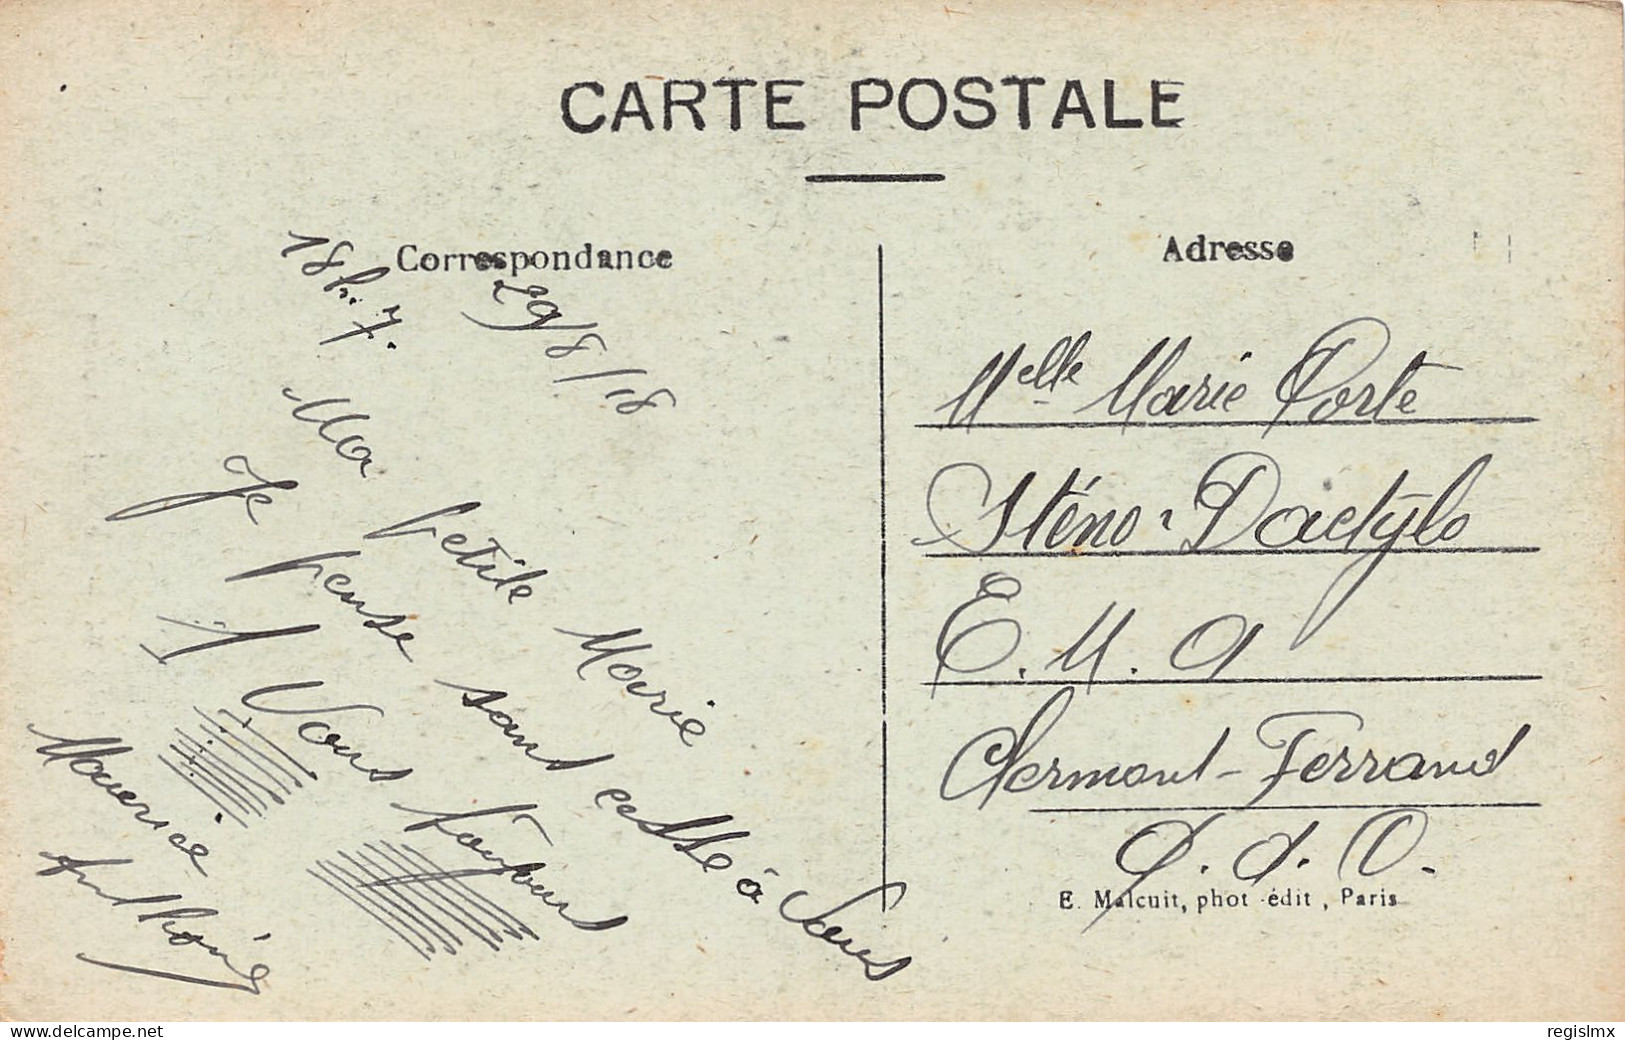 CARTE POSTALE
Correspondance
18h.7.
29/8/18
Ma petite Marie
Je pense sans cesse à
1 Vous toujours
Maurice
Anthoine
Adresse
Melle Marie Porte
Sténo-Dactylo
E. M. A
Clermont-Ferrand
P. d. D.
E. Malcuit, phot-édit, Paris
www.delcampe.net
regislmx